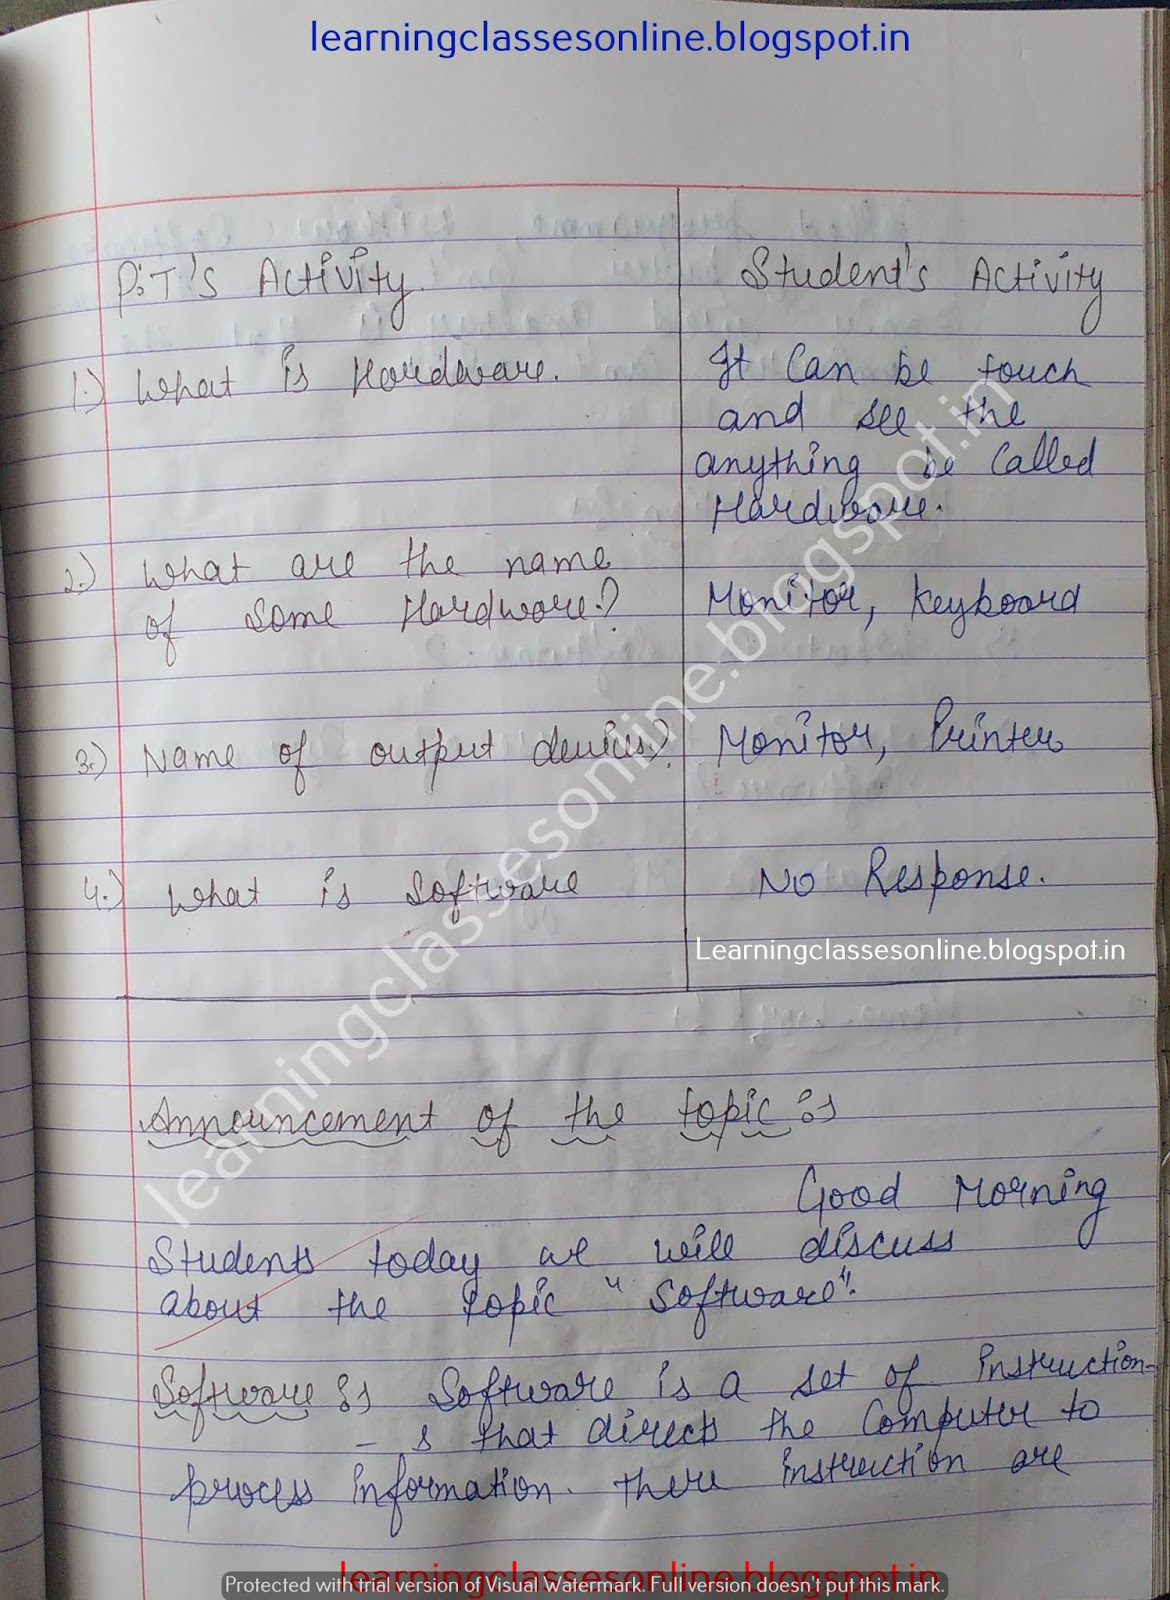 learningclassesonline.blogspot.in
P.T's Activity.
Student's Activity
1.) What is Hardware.
It Can be touch
and see the
anything be Called
Hardware.
2.) What are the name
of Some Hardware?
Monitor, Keyboard
3.) Name of output devices?
Monitor, Printer
4.) What is Software
No Response.
Learningclassesonline.blogspot.in
Announcement of the topic :-
Good Morning
Students today we will discuss
about the topic "Software".
Software :- Software is a set of instruction-
- s that directs the Computer to
process information. There instruction are
learningclassesonline.blogspot.in
learningclassesonline.blogspot.in
Protected with trial version of Visual Watermark. Full version doesn't put this mark.